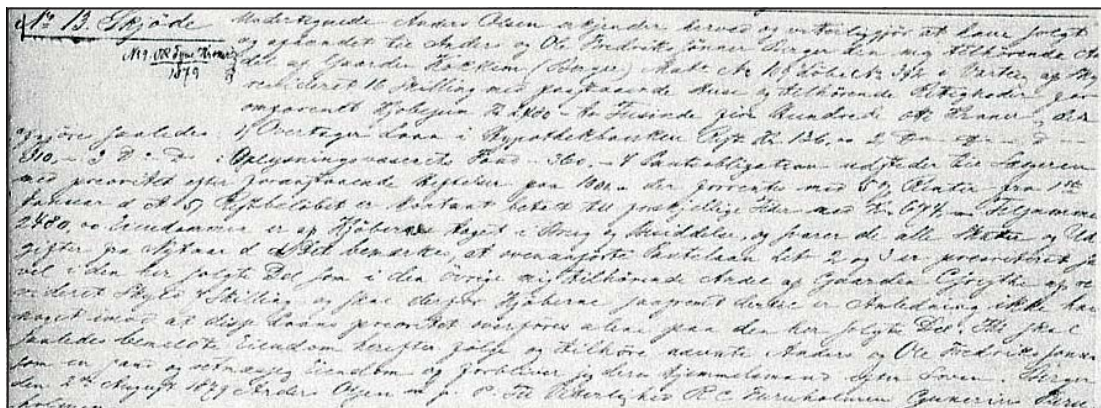 No 13. Skjöde Undertegnede Anders Olsen erkjender herved og vitterliggjør at have solgt
og afhændet til Anders og Ole Fredriks sønner Berger den mig tilhørende An
No 9. 1879 del af Gaarden (Berger) Matr No Löbe No af Sky
revideret 16 Skilling med paastaaende Huse og tilhørende Rettigheder for
omforenet Kjøbesum Kr 2480 - to Tusinde fire Hundrede otti Kroner, der
opgjøres saaledes: 1) Overtager Laan i Hypothekbanken Rest Kr. 136, 2
310, - 3 D: D: i Oplysningsvæsenets Fond - 360. - 4 Pantobligation udsteder til Sælgeren
med prioritet efter foranstaaende Heftelser paa der forrentes med 5% Renter fra 1ste
Januar d. A. 5) Restbeløbet er kontant betalt til forskjellige Tider med Kr. 674, Tilsammen
2480, Eiendommen er af Kjøberne taget i Brug og Besiddelse, og svarer de alle Skatter og Ud
gifter fra Nytaar d. A. Det bemærkes, at ovenanførte Pantelaan litr 2 og 3 er prioriteret saa
vel i den her solgte Del som i den øvrige mig tilhørende Andel af Gaarden af re
videret Skyld Skilling og skal derfor Kjøberne saafremt dertil er Anledning ikke have
noget imod at disse Laans prioritet overføres alene paa den her solgte Del. Thi skal
saaledes benævnte Eiendom herefter følge og tilhøre nævnte Anders og Ole Fredriks sønner
som en sand og retmæssig Eiendom og forbliver jeg deres Hjemmelsmand efter Loven. Berger
den 2den August 1879 Anders Olsen m. p. P. Til Vitterlighed R. C. Furuholmen Gunerius Furu
holmen